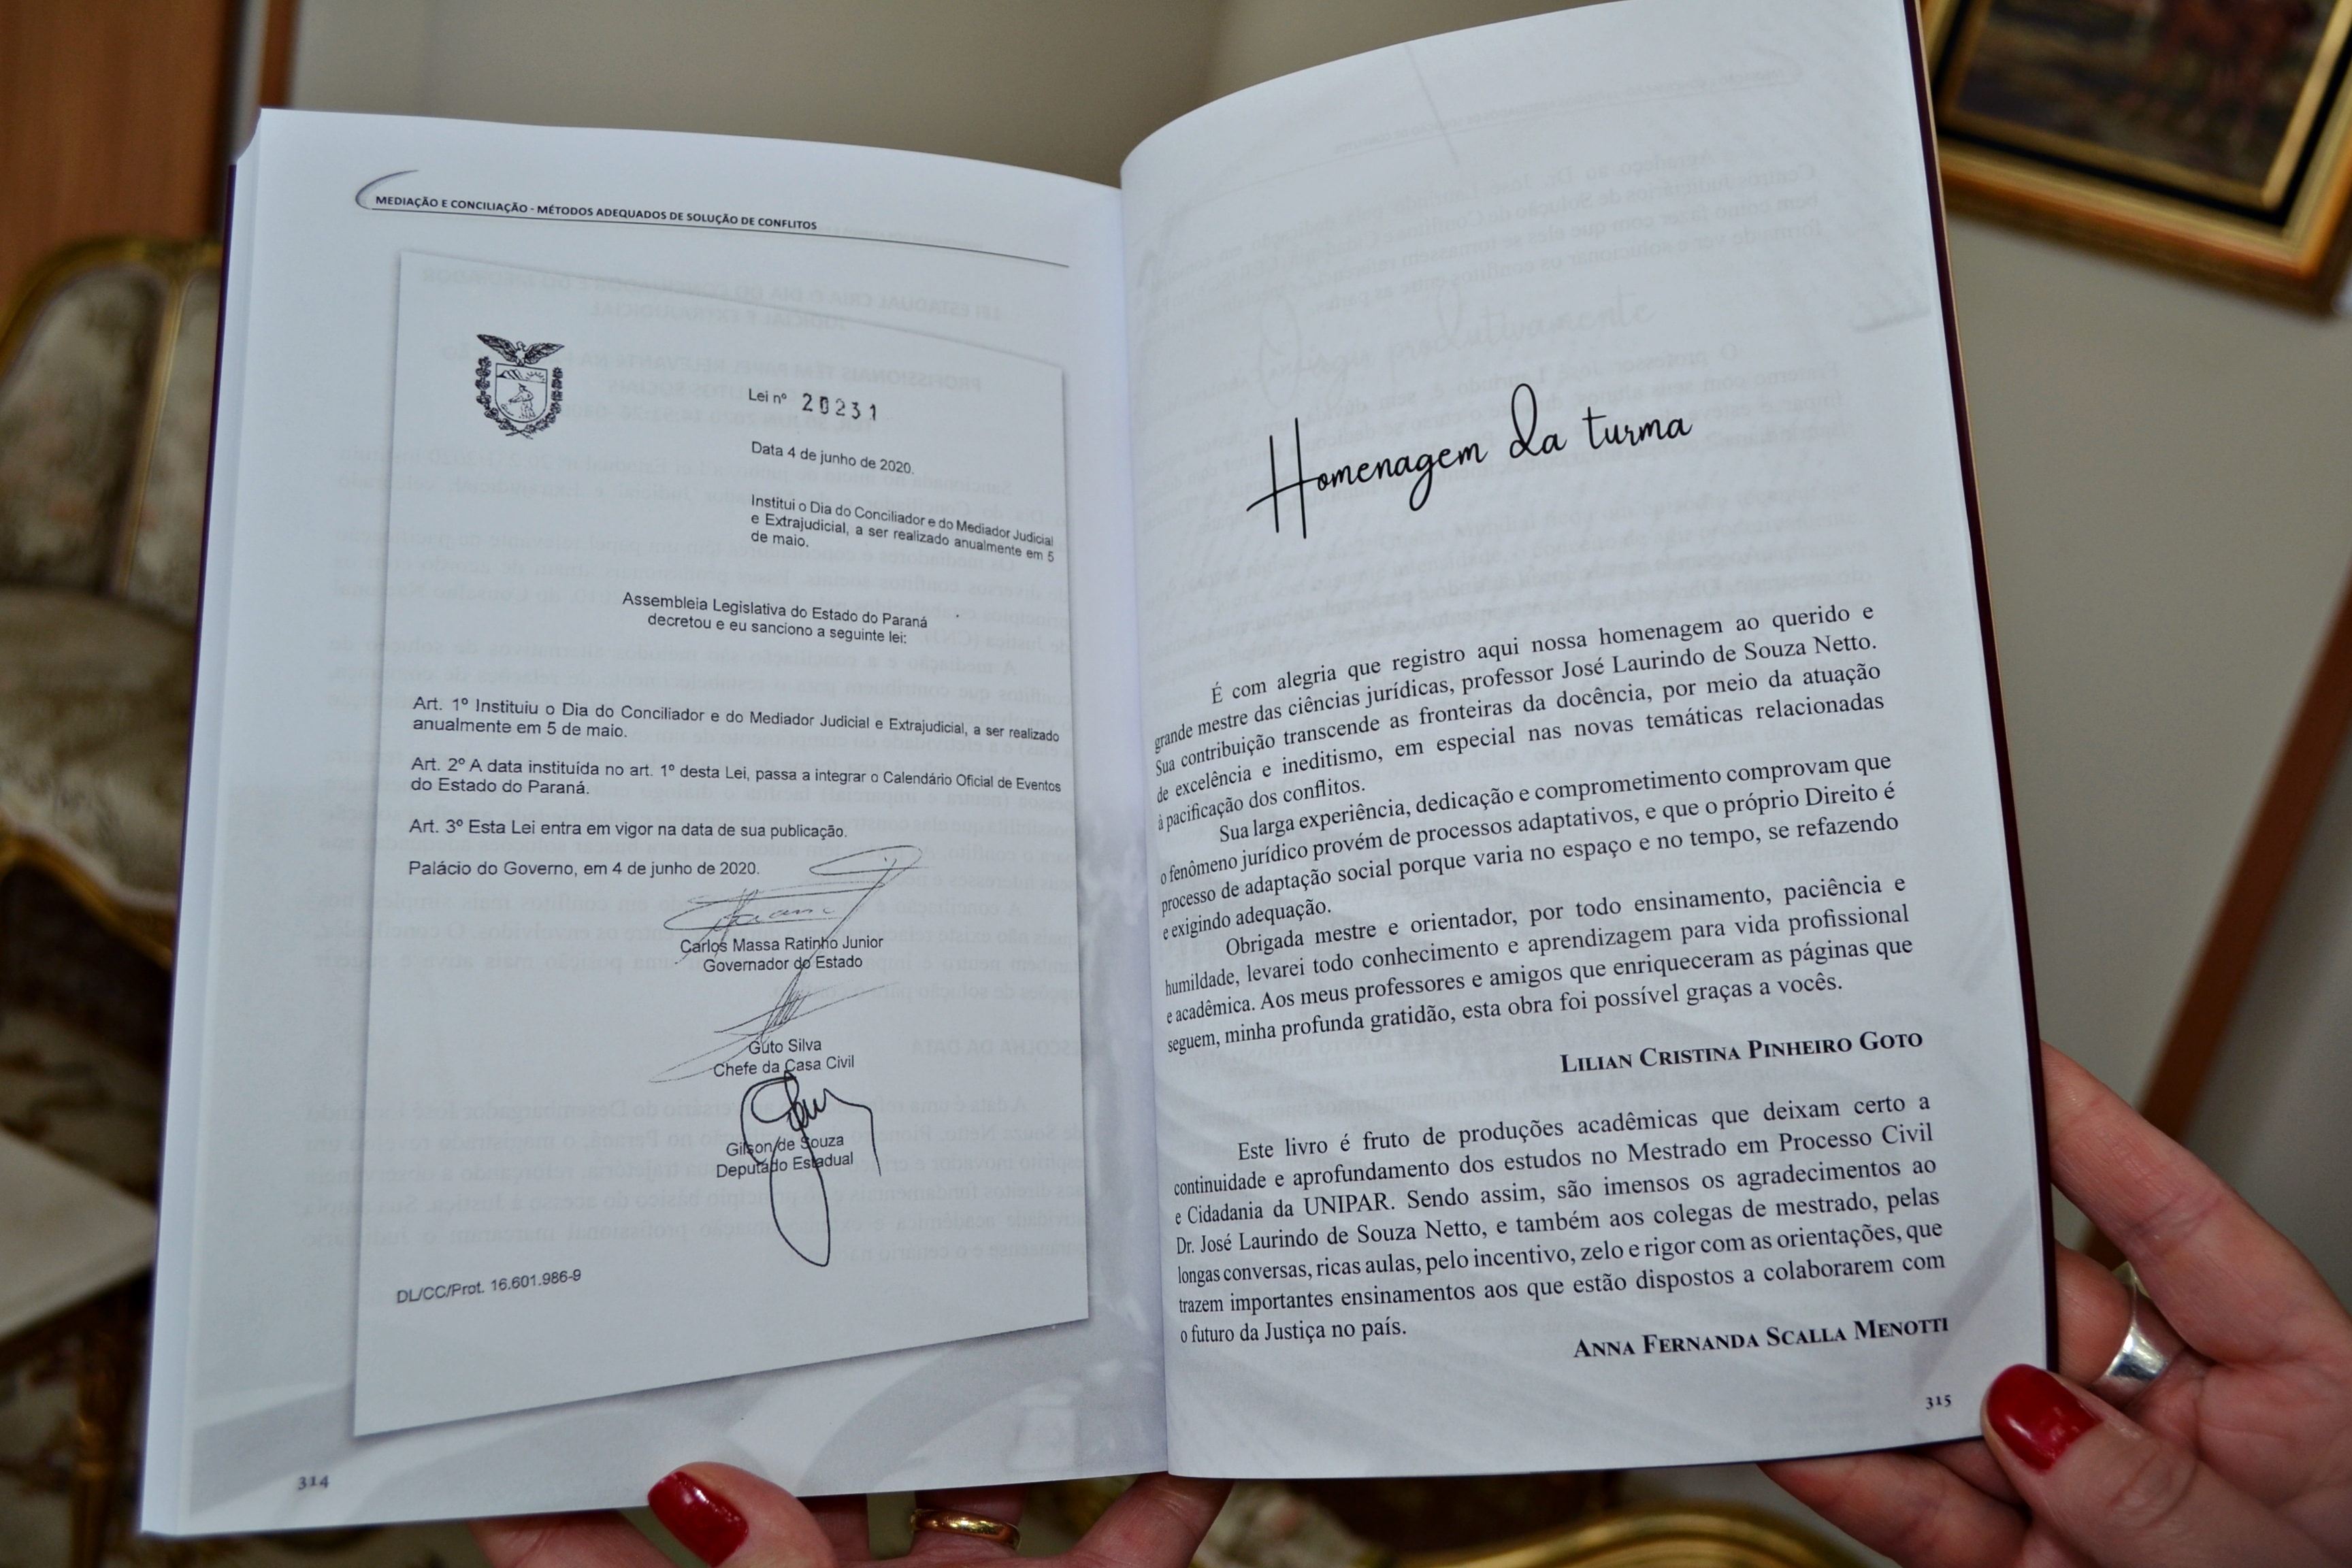 MEDIAÇÃO E CONCILIAÇÃO - MÉTODOS ADEQUADOS DE SOLUÇÃO DE CONFLITOS
Lei nº 20231
Data 4 de junho de 2020.
Institui o Dia do Conciliador e do Mediador Judicial
e Extrajudicial, a ser realizado anualmente em 5
de maio.
Assembleia Legislativa do Estado do Paraná
decretou e eu sanciono a seguinte lei:
Art. 1º Instituiu o Dia do Conciliador e do Mediador Judicial e Extrajudicial, a ser realizado
anualmente em 5 de maio.
Art. 2º A data instituída no art. 1º desta Lei, passa a integrar o Calendário Oficial de Eventos
do Estado do Paraná.
Art. 3º Esta Lei entra em vigor na data de sua publicação.
Palácio do Governo, em 4 de junho de 2020.
Carlos Massa Ratinho Junior
Governador do Estado
Guto Silva
Chefe da Casa Civil
Gilson de Souza
Deputado Estadual
DL/CC/Prot. 16.601.986-9
314
Homenagem da turma
É com alegria que registro aqui nossa homenagem ao querido e
grande mestre das ciências jurídicas, professor José Laurindo de Souza Netto.
Sua contribuição transcende as fronteiras da docência, por meio da atuação
de excelência e ineditismo, em especial nas novas temáticas relacionadas
à pacificação dos conflitos.
Sua larga experiência, dedicação e comprometimento comprovam que
o fenômeno jurídico provém de processos adaptativos, e que o próprio Direito é
processo de adaptação social porque varia no espaço e no tempo, se refazendo
e exigindo adequação.
Obrigada mestre e orientador, por todo ensinamento, paciência e
humildade, levarei todo conhecimento e aprendizagem para vida profissional
e acadêmica. Aos meus professores e amigos que enriqueceram as páginas que
seguem, minha profunda gratidão, esta obra foi possível graças a vocês.
LILIAN CRISTINA PINHEIRO GOTO
Este livro é fruto de produções acadêmicas que deixam certo a
continuidade e aprofundamento dos estudos no Mestrado em Processo Civil
e Cidadania da UNIPAR. Sendo assim, são imensos os agradecimentos ao
Dr. José Laurindo de Souza Netto, e também aos colegas de mestrado, pelas
longas conversas, ricas aulas, pelo incentivo, zelo e rigor com as orientações, que
trazem importantes ensinamentos aos que estão dispostos a colaborarem com
o futuro da Justiça no país.
ANNA FERNANDA SCALLA MENOTTI
315